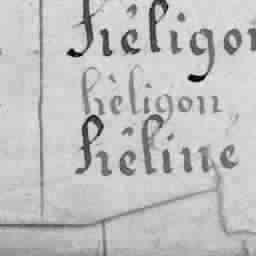 héligon
hèligon,
hêline